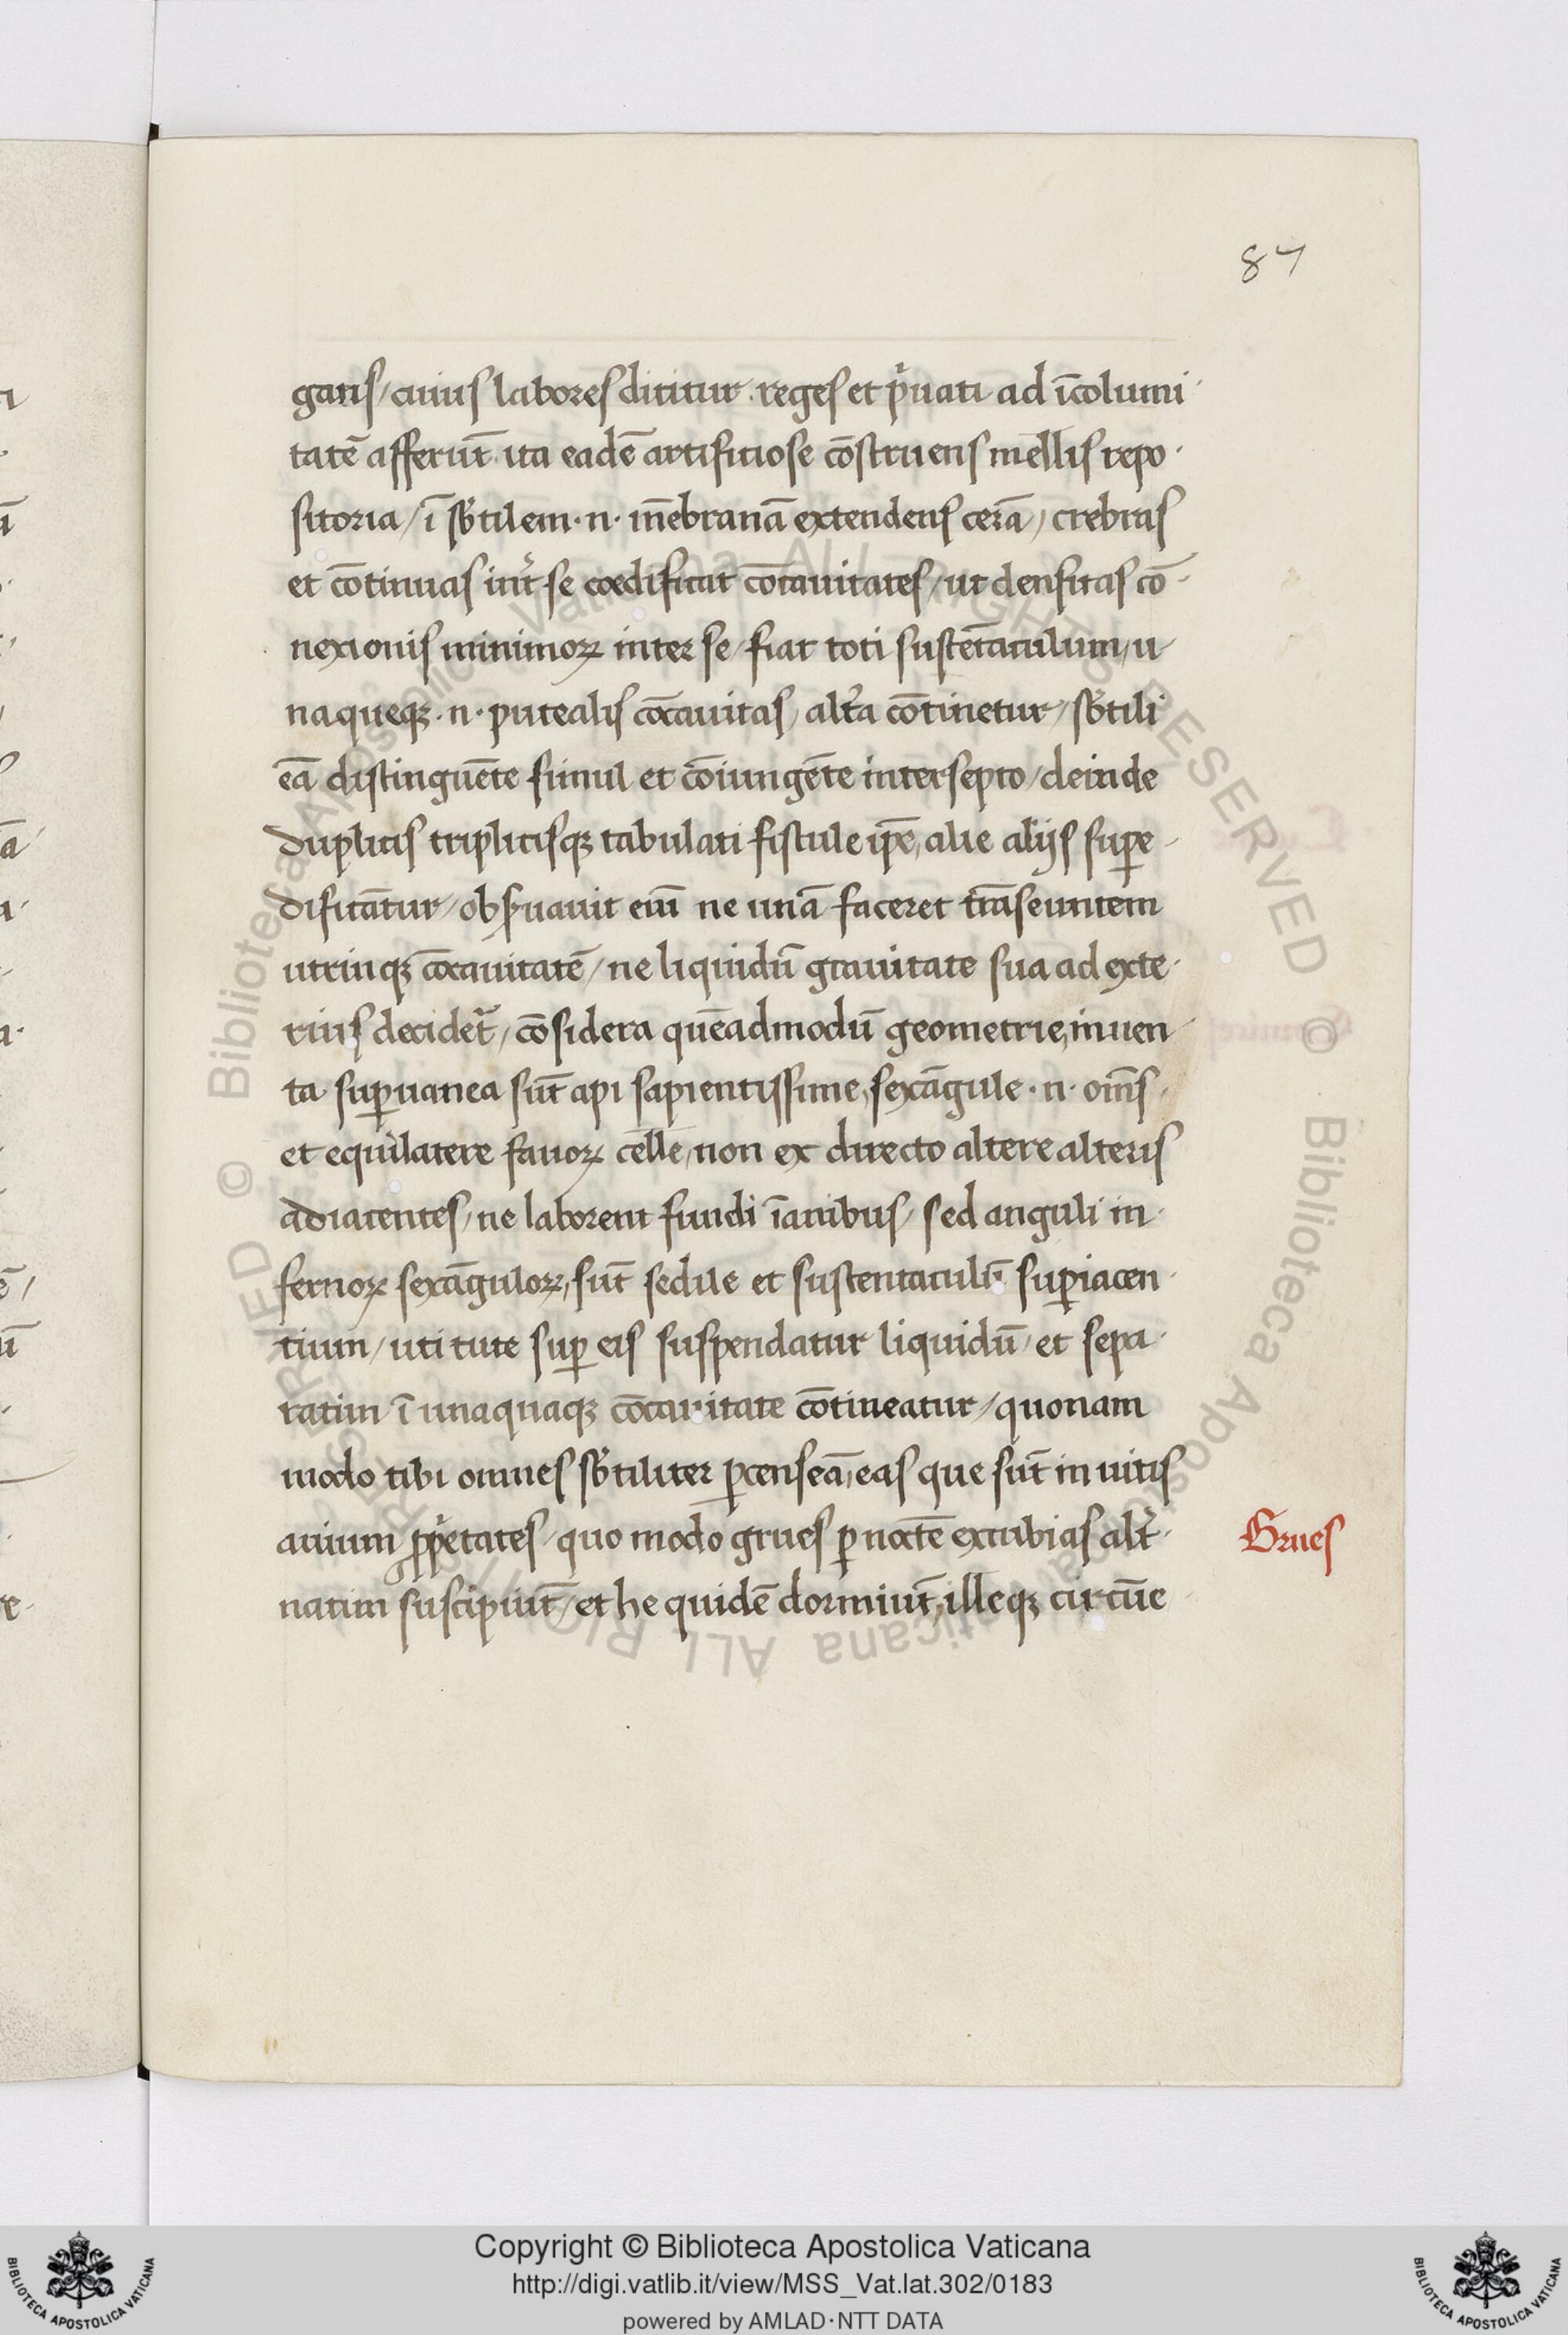 87
gatis/ cuius labores dititur reges et pͥuati ad īcolumi
tatē afferūt ita eadē artifitiose cōstruens mellis repo
sitoria/ ī sb̄tilem · n · mēbranā extendens cerā / crebras
et cōtinuas int̉ se coedificat cōcauitates/ ut densitas cō
nexionis minimoꝝ inter se fiat toti sustētaculum/ u
naqueqꝫ · n · putealis cōcauitas/ alt̉a cōtinetur/ sb̄tili
eā distinguēte simul et cōiungēte intersepto/ deinde
duplicis triplicisqꝫ tabulati fistule ip̄e, alie alijs suꝑe
dificātur/ obẜuauit eīu ne unā faceret trāseuntem
utrinqꝫ cōcauitatē/ ne liquidū grauitate sua ad exte
rius decidet̄/ cōsidera quēadmodū geometrie, inuen
ta suꝑuanea sūt api sapientissime, sexāgule · n · om̄s
et equilatere fauoꝝ celle, non ex directo altere alteris
adiacentes/ ne laborent fundi īanibus/ sed anguli in
fernoꝝ sexāguloꝝ, sūt sedile et sustentaculū suꝑiacen
tium/ uti tute suꝑ eis suspendatur liquidū et sepa
ratim ī unaquaqꝫ cōcauitate cōtineatur/ quonam
modo tibi omnes sb̄tiliter ꝑcenseā, eas que sūt in uitis
auium ꝓp̉etates quo modo grues ꝑ noctē excubias alt̉
natim suscipiūt/ et he quidē dormiūt, illeqꝫ circūe
Grues
© Biblioteca Apostolica Vaticana ALL RIGHTS RESERVED
© Biblioteca Apostolica Vaticana ALL RIGHTS RESERVED
Copyright © Biblioteca Apostolica Vaticana
http://digi.vatlib.it/view/MSS_Vat.lat.302/0183
powered by AMLAD·NTT DATA
BIBLIOTECA APOSTOLICA VATICANA
BIBLIOTECA APOSTOLICA VATICANA